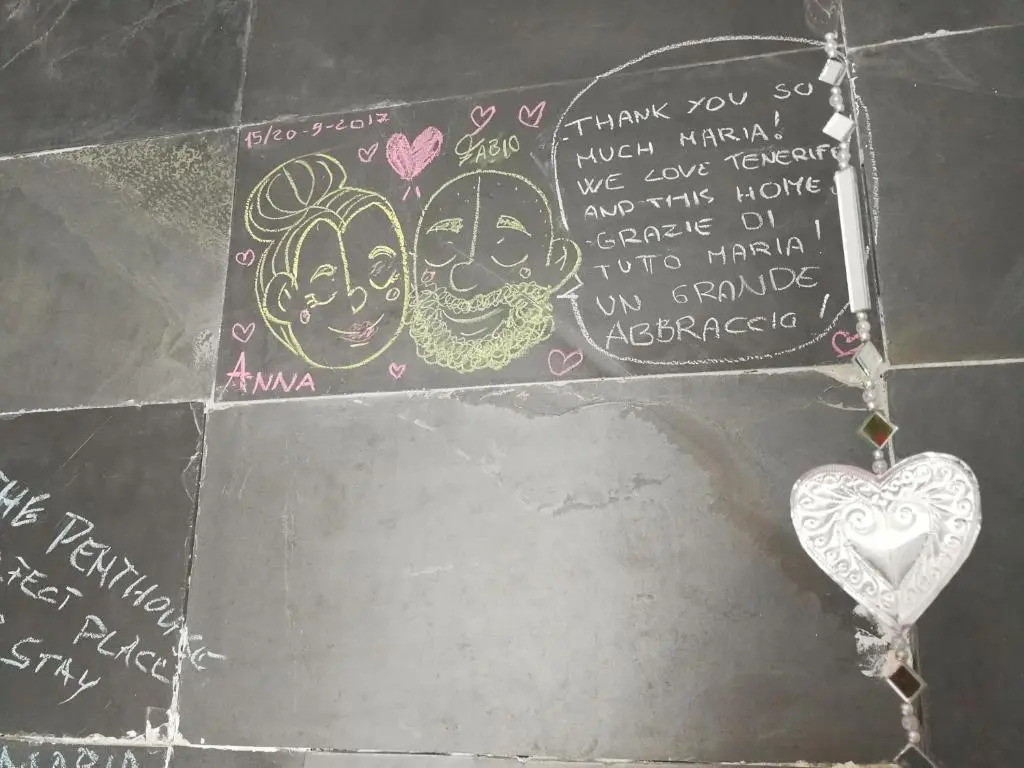 15/20-9-2017
FABIO
ANNA
THANK YOU SO
MUCH MARIA!
WE LOVE TENERIFE
AND THIS HOME
GRAZIE DI
TUTO MARIA!
UN GRANDE
ABBRACCIO!
THE PENTHOUSE
PLACE
STAY